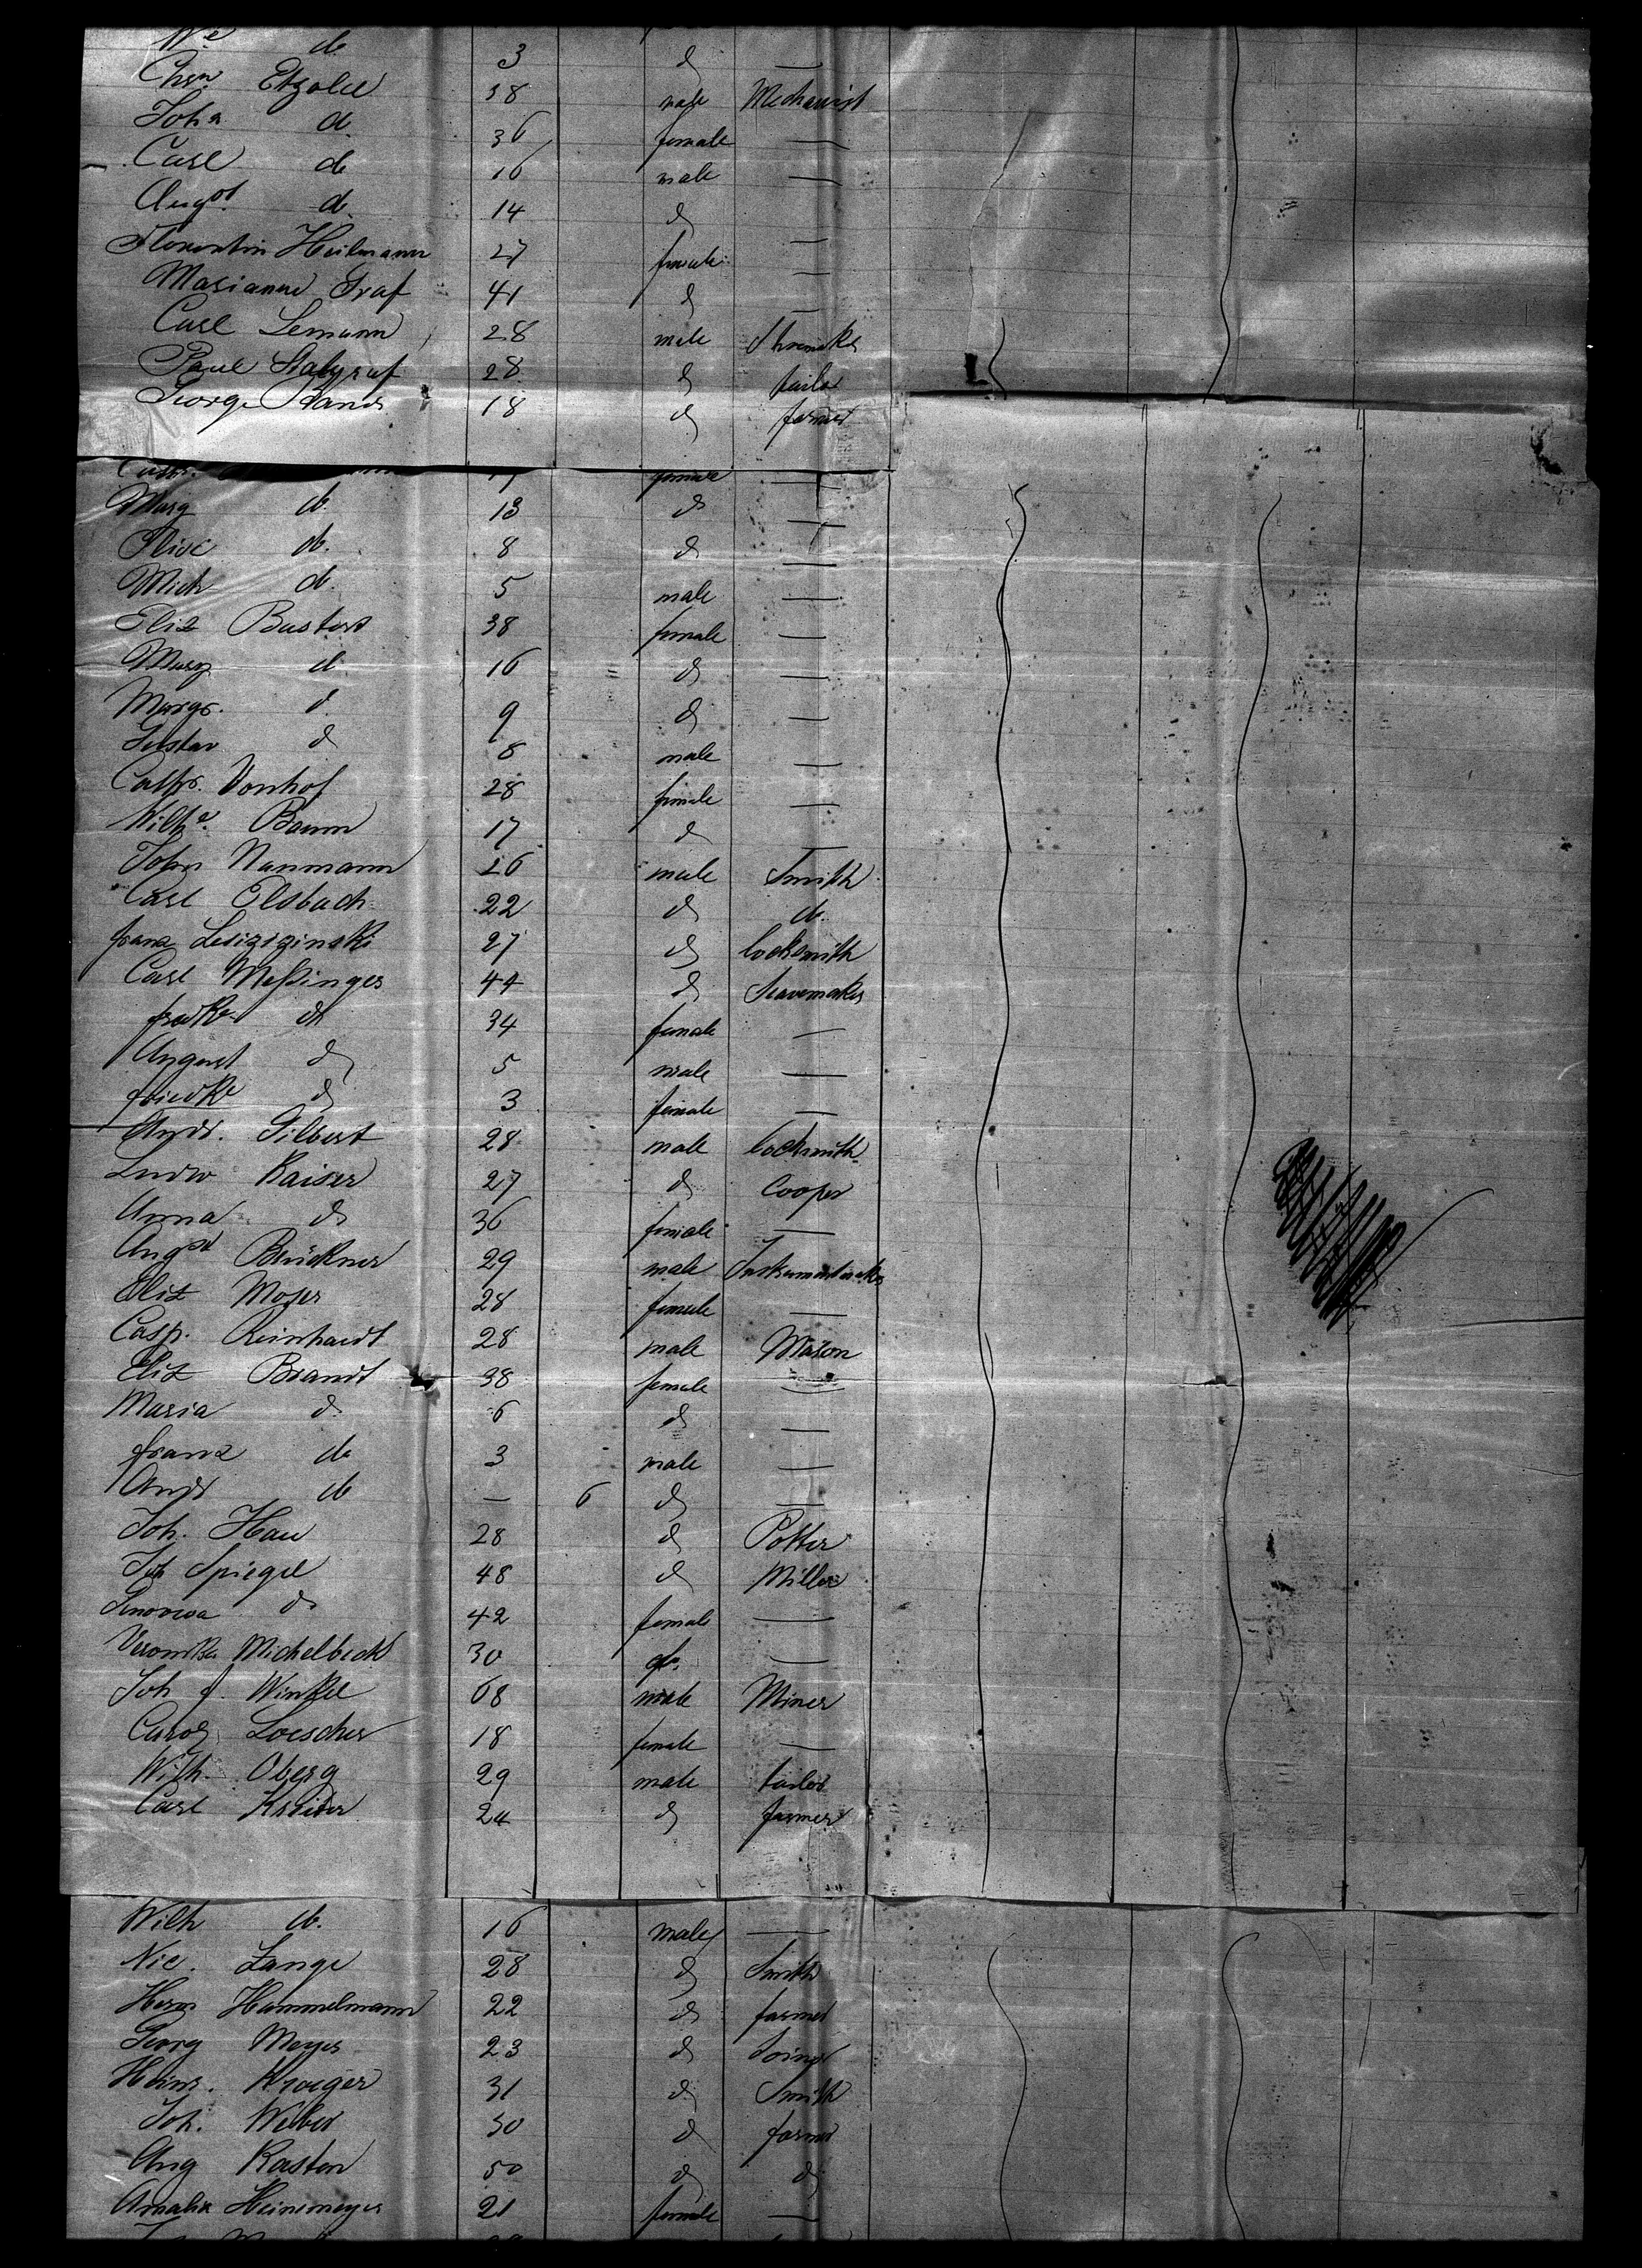 We do 3 do —
Chrn Etzold 38 male Mechanist
Joha do 36 female —
Carl do 16 male —
Augst. do 14 do —
Florentin Heilmann 27 female —
Marianne Graf 41 do —
Carl Lemann 28 male Shoemaker
Paul 28 do tailor
George 18 do farmer
female —
Marg do 13 do —
Elise do. 8 do —
Mich do. 5 male —
Elis Bustert 38 female —
Marg do 16 do —
Margr. do 9 do —
Gustav do 8 male —
Cathr. Vonhof 28 female —
Wilhe. Baum 17 do —
John Naumann 26 male Smith
Carl Elsbach 22 do do.
franz 27 do locksmith
Carl Meßinger 44 do
fredke do 34 female —
August do 5 male —
friedke do 3 female —
Andr. Gilbert 28 male locksmith
Ludw Kaiser 27 do Cooper
Anna do 36 female —
Augst Brückner 29 male Instrumentmaker
Elis Moser 28 female —
Casp. Reinhardt 28 male Mason
Elis Brandt 38 female —
Maria do 6 do —
franz do 3 male —
Andr do — 6 do —
Joh. Hau 28 do Potter
Joh Spiegel 48 do Miller
do 42 female —
Veronika Michelbach 30 do —
Joh f. Winkel 68 male Miner
Carol Loescher 18 female —
Wilh. Oberg 29 male tailor
Carl 24 do farmer
Wilh do. 16 male —
Nic. Lange 28 do Smith
Herm Hummelmann 22 do farmer
Georg Meyer 23 do
Heinr. Kroeger 31 do Smith
Joh. Weber 30 do farmer
Aug Kasten 50 do do
Amalia Heinemeyer 21 female —